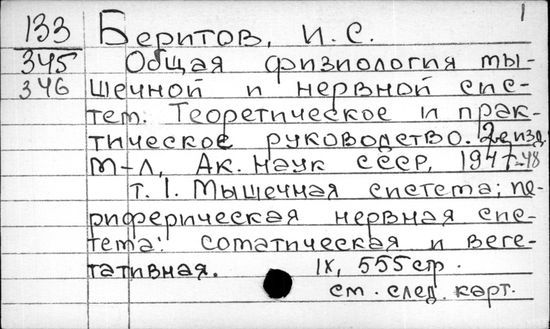 1
133 Беритов, И. С.
345 Общая физиология мы-
346 шечной и нервной сис-
тем. Теоретическое и прак-
тическое руководство. 2е изд.
М-Л, Ак. наук СССР, 1947-48
т. 1. Мышечная система; пе-
риферическая нервная сис-
тема: соматическая и веге-
тативная. IX, 555 стр.
см. след. карт.